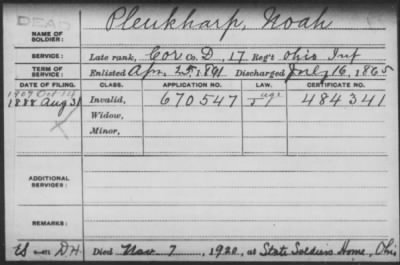 DEAD
NAME OF SOLDIER: Pleukharp, Noah
SERVICE: Late rank, Cor Co. D, 17 Reg't Ohio Inf
TERM OF SERVICE: Enlisted Apr. 25, 1861 Discharged July 16, 1865
DATE OF FILING. CLASS. APPLICATION NO. LAW. CERTIFICATE NO.
1907 Oct
1888 Aug 31 Invalid, 670547 484341
Widow,
Minor,
ADDITIONAL SERVICES:
REMARKS:
Died Nov. 7, 1920, at State Soldiers Home, Ohio